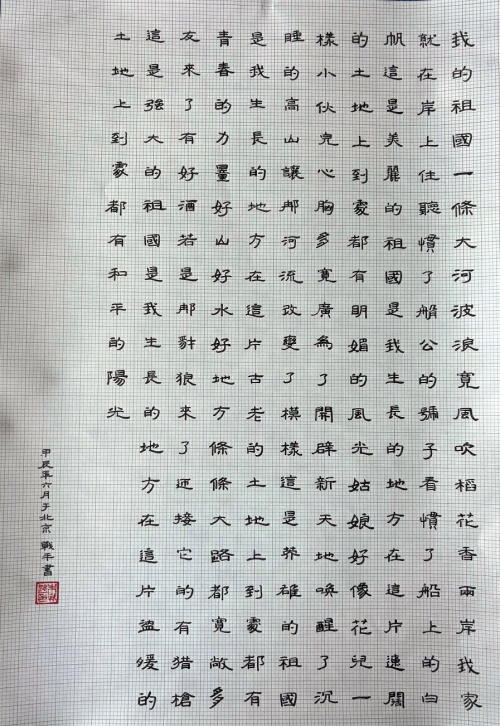 我的祖國一條大河波浪寬風吹稻花香兩岸我家
就在岸上住聽慣了艄公的號子看慣了船上的白
帆這是美麗的祖國是我生長的地方在這片遼闊
的土地上到處都有明媚的風光姑娘好像花兒一
樣小伙兒心胸多寬廣為了開辟新天地喚醒了沉
睡的高山讓那河流改變了模樣這是英雄的祖國
是我生長的地方在這片古老的土地上到處都有
青春的力量好山好水好地方條條大路都寬敞朋
友來了有好酒若是那豺狼來了迎接它的有猎槍
這是強大的祖國是我生長的地方在這片溫暖的
土地上到處都有和平的陽光
甲辰年六月于北京 戰平書